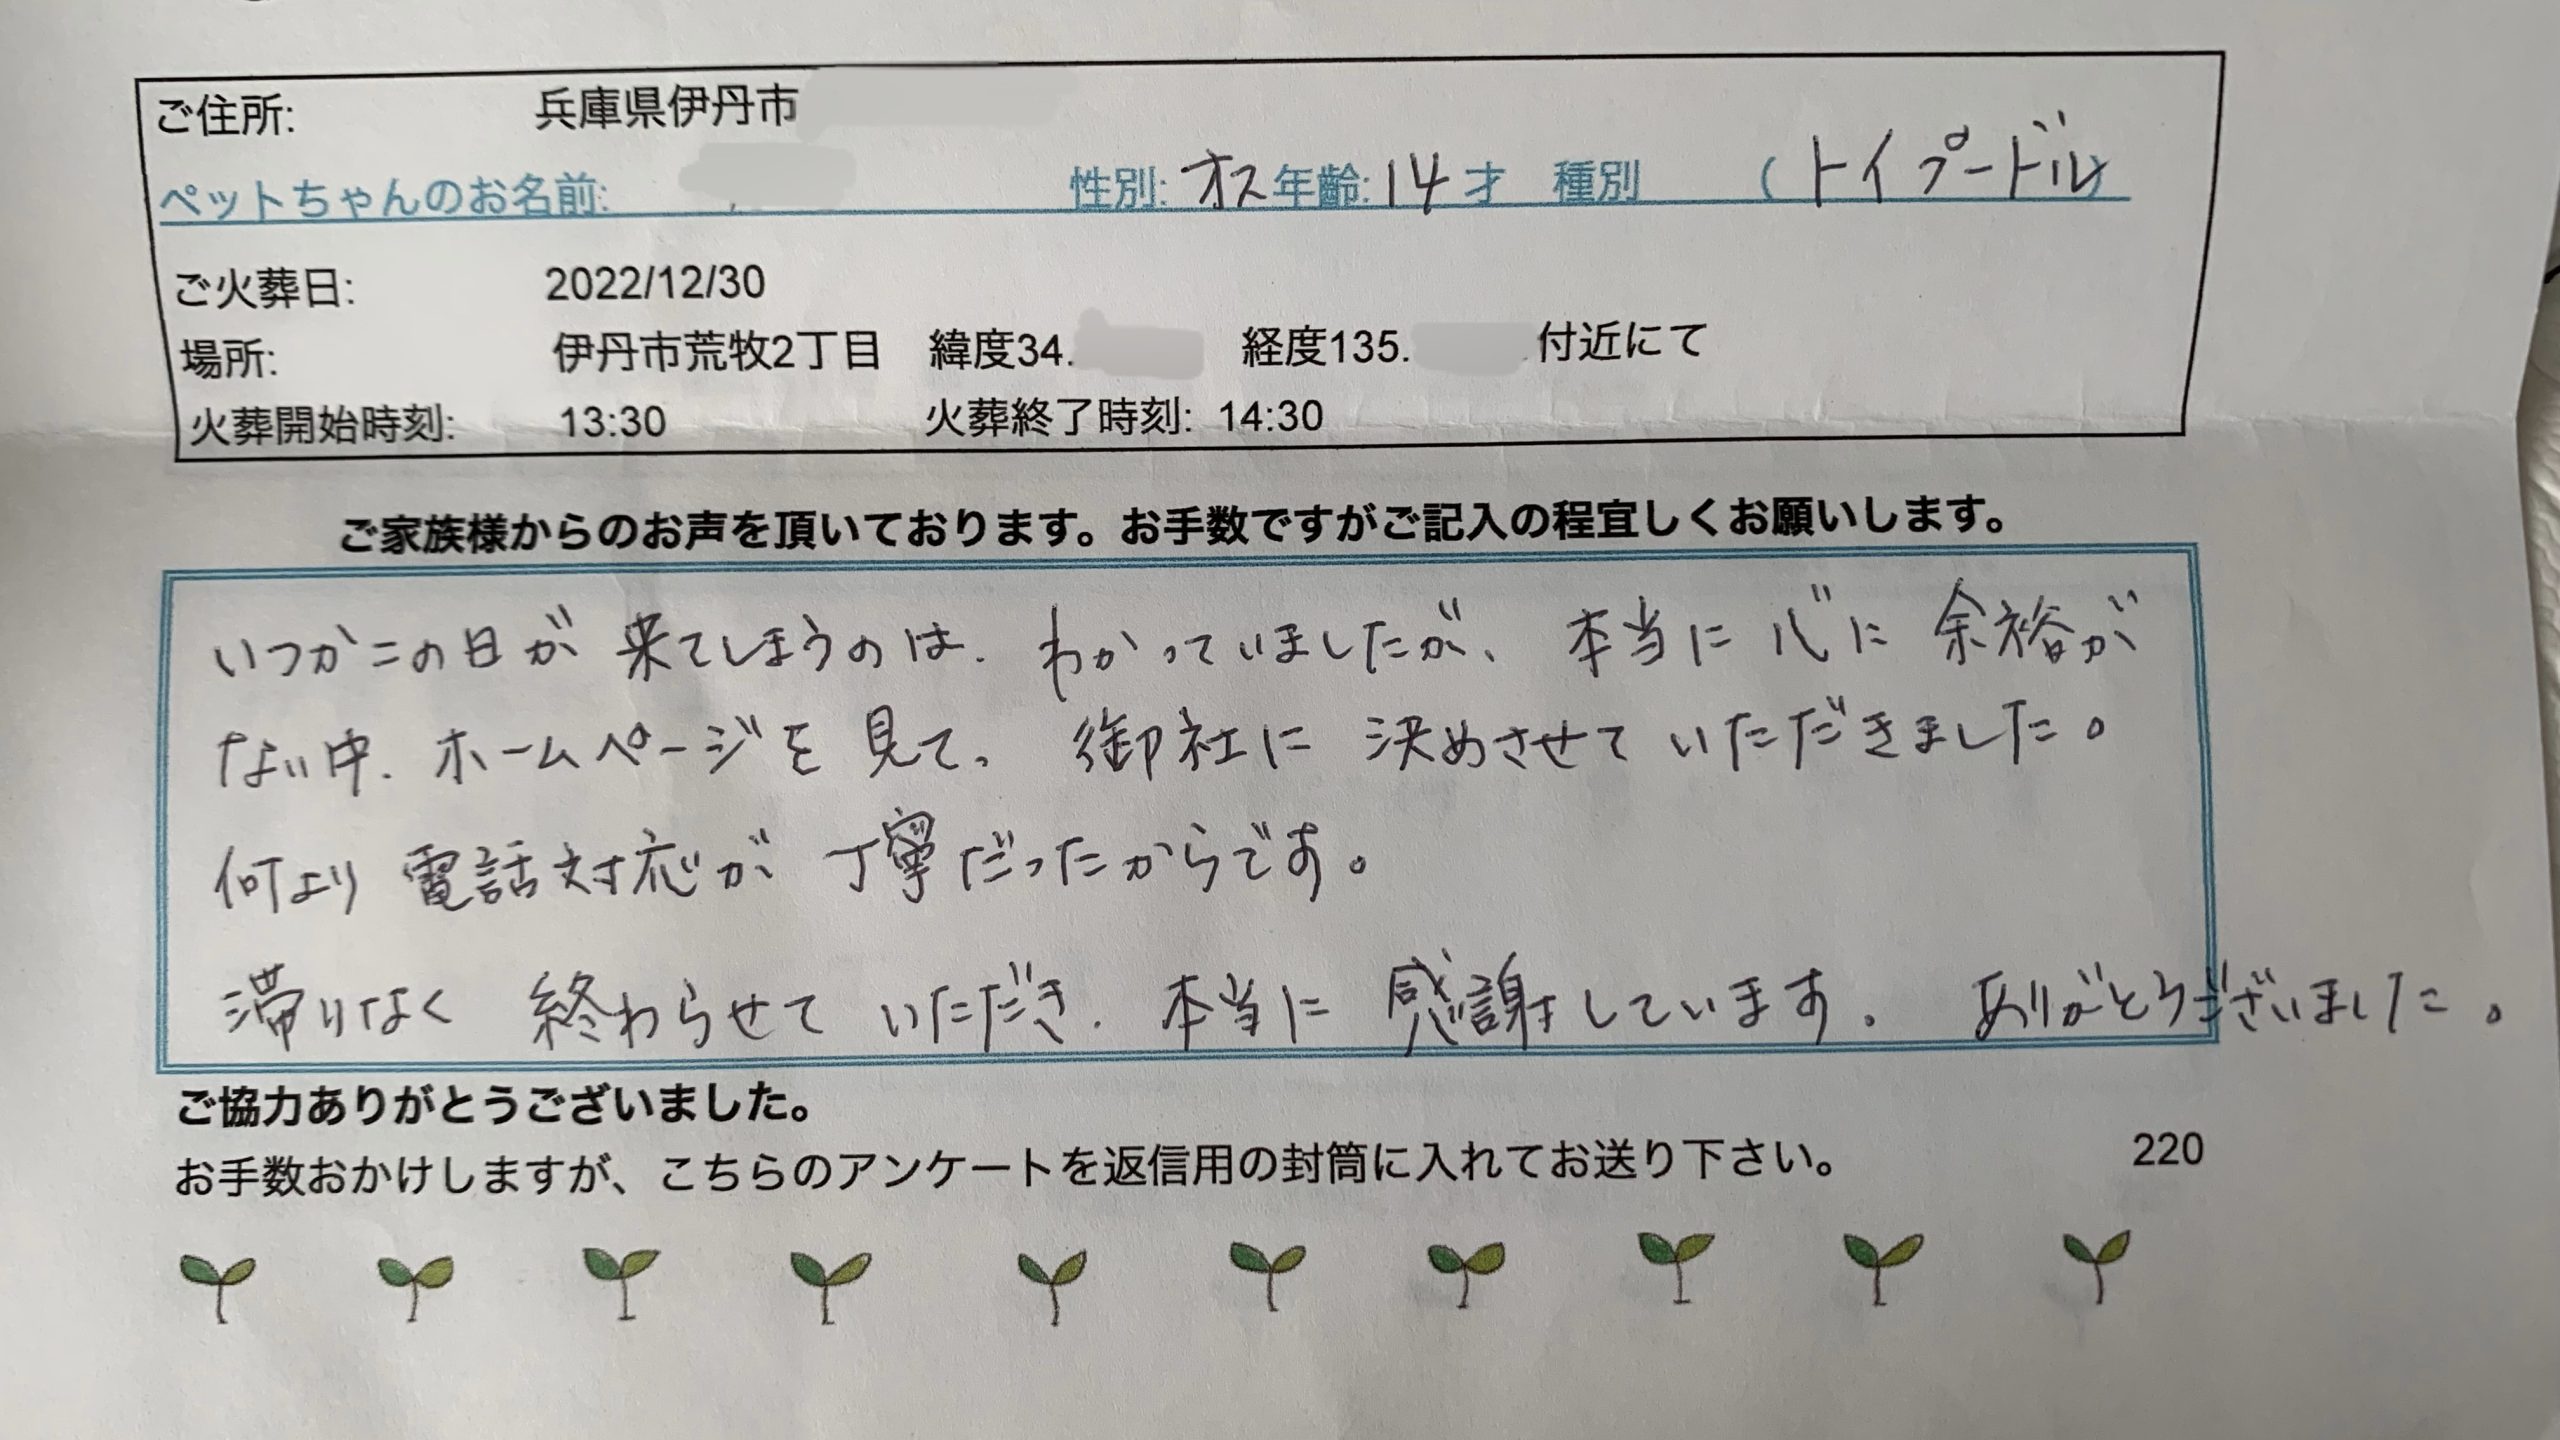 ご住所: 兵庫県伊丹市
ペットちゃんのお名前: 性別: オス 年齢: 14 才 種別 (トイプードル)
ご火葬日: 2022/12/30
場所: 伊丹市荒牧2丁目 緯度34. 経度135. 付近にて
火葬開始時刻: 13:30 火葬終了時刻: 14:30
ご家族様からのお声を頂いております。お手数ですがご記入の程宜しくお願いします。
いつかこの日が来てしまうのは、わかっていましたが、本当に心に余裕が
ない中、ホームページを見て、御社に決めさせていただきました。
何より電話対応が丁寧だったからです。
滞りなく終わらせていただき、本当に感謝しています。ありがとうございました。
ご協力ありがとうございました。
お手数おかけしますが、こちらのアンケートを返信用の封筒に入れてお送り下さい。 220